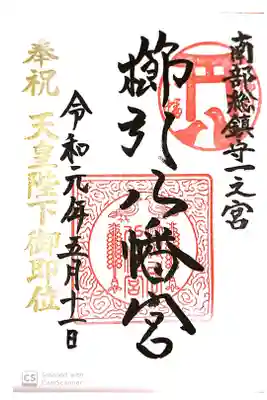 南部総鎮守一之宮
櫛引八幡宮
令和元年五月十一日
奉祝 天皇陛下御即位
CS Scanned with CamScanner